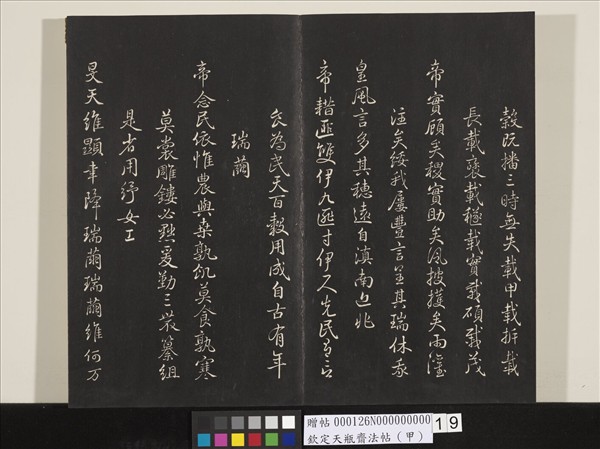 穀既播三時無失載甲載拆載
長載褎載穟載實載碩載茂
帝實顧矣稷實助矣風披護矣雨濡
注矣綏我屢豐言呈其瑞休哉
皇風言多其穗遠自滇南迄北
帝耤匪雙伊九匪寸伊尺先民有言
食為民天百穀用成自古有年
瑞繭
帝念民依惟農與桑孰飢莫食孰寒
莫裳雕鏤必黜爰勤三裘纂組
是省用紓女工
旻天維顯聿降瑞繭瑞繭維何万
贈帖 000126N000000000 19
欽定天瓶齋法帖（甲）